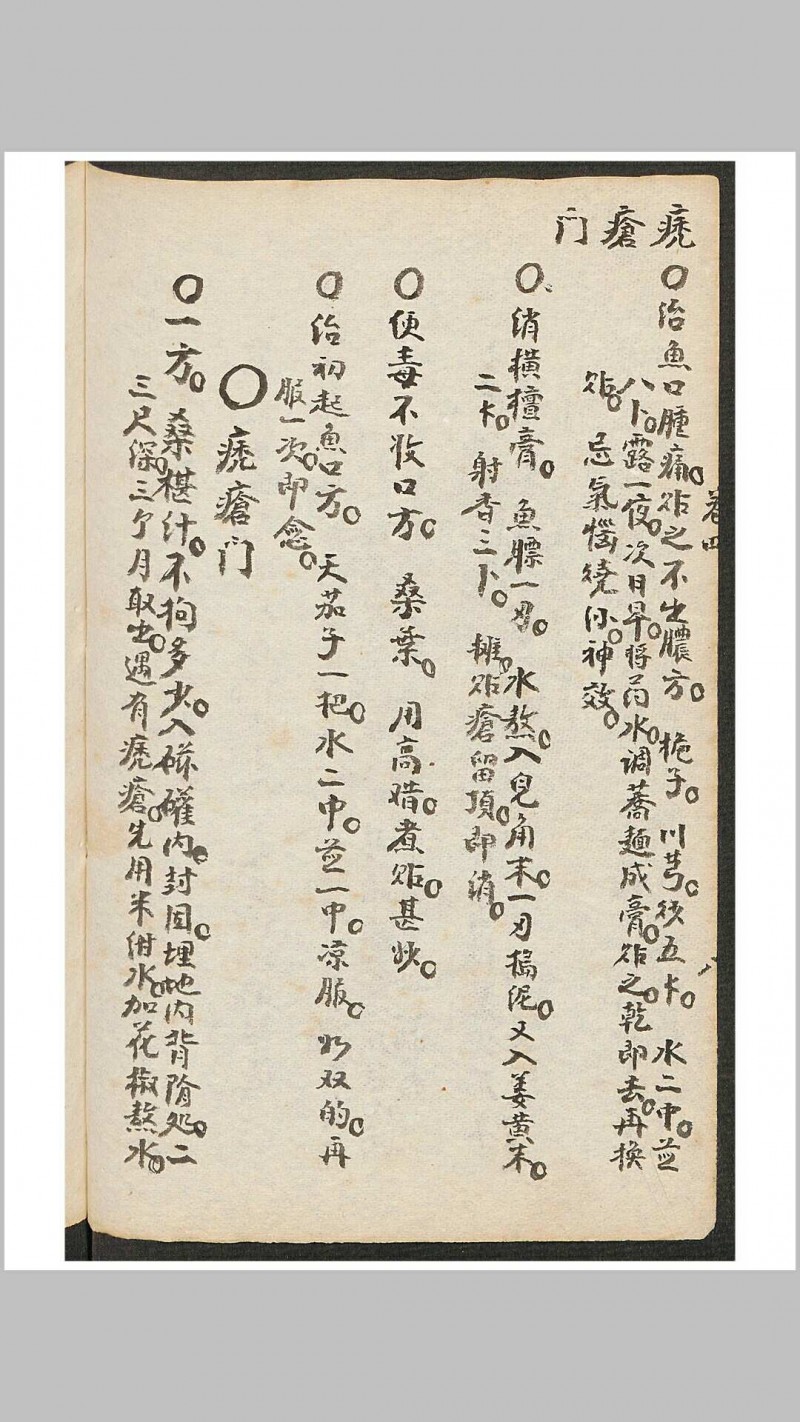 禿瘡門
卷四
○治魚口腫痛。貼之不出膿方。 梔子。川芎。各五卜。 水二中。煎
八卜。露一夜。次日早。將药水。調蕎麵成膏。貼之。乾即去。再換
貼。忌氣惱 神效。
○消横 膏。 魚膘一刃。水熬。入皃角末。一刃搗泥。又入姜黄末。
二卜。射香三卜。摊貼瘡留頂。即消。
○便毒不收口方。 桑葉。 用高醋。煮貼。甚妙。
○治初起魚口方。 天茄子一把。水二中。煎一中。凉服。如双的。再
服一次。即愈。
○禿瘡门
○一方。桑椹汁。不拘多少。入磁礶内。封固。埋地内背陰处。二
三尺深。三个月取出。遇有禿瘡。先用米泔水。加花椒熬水。